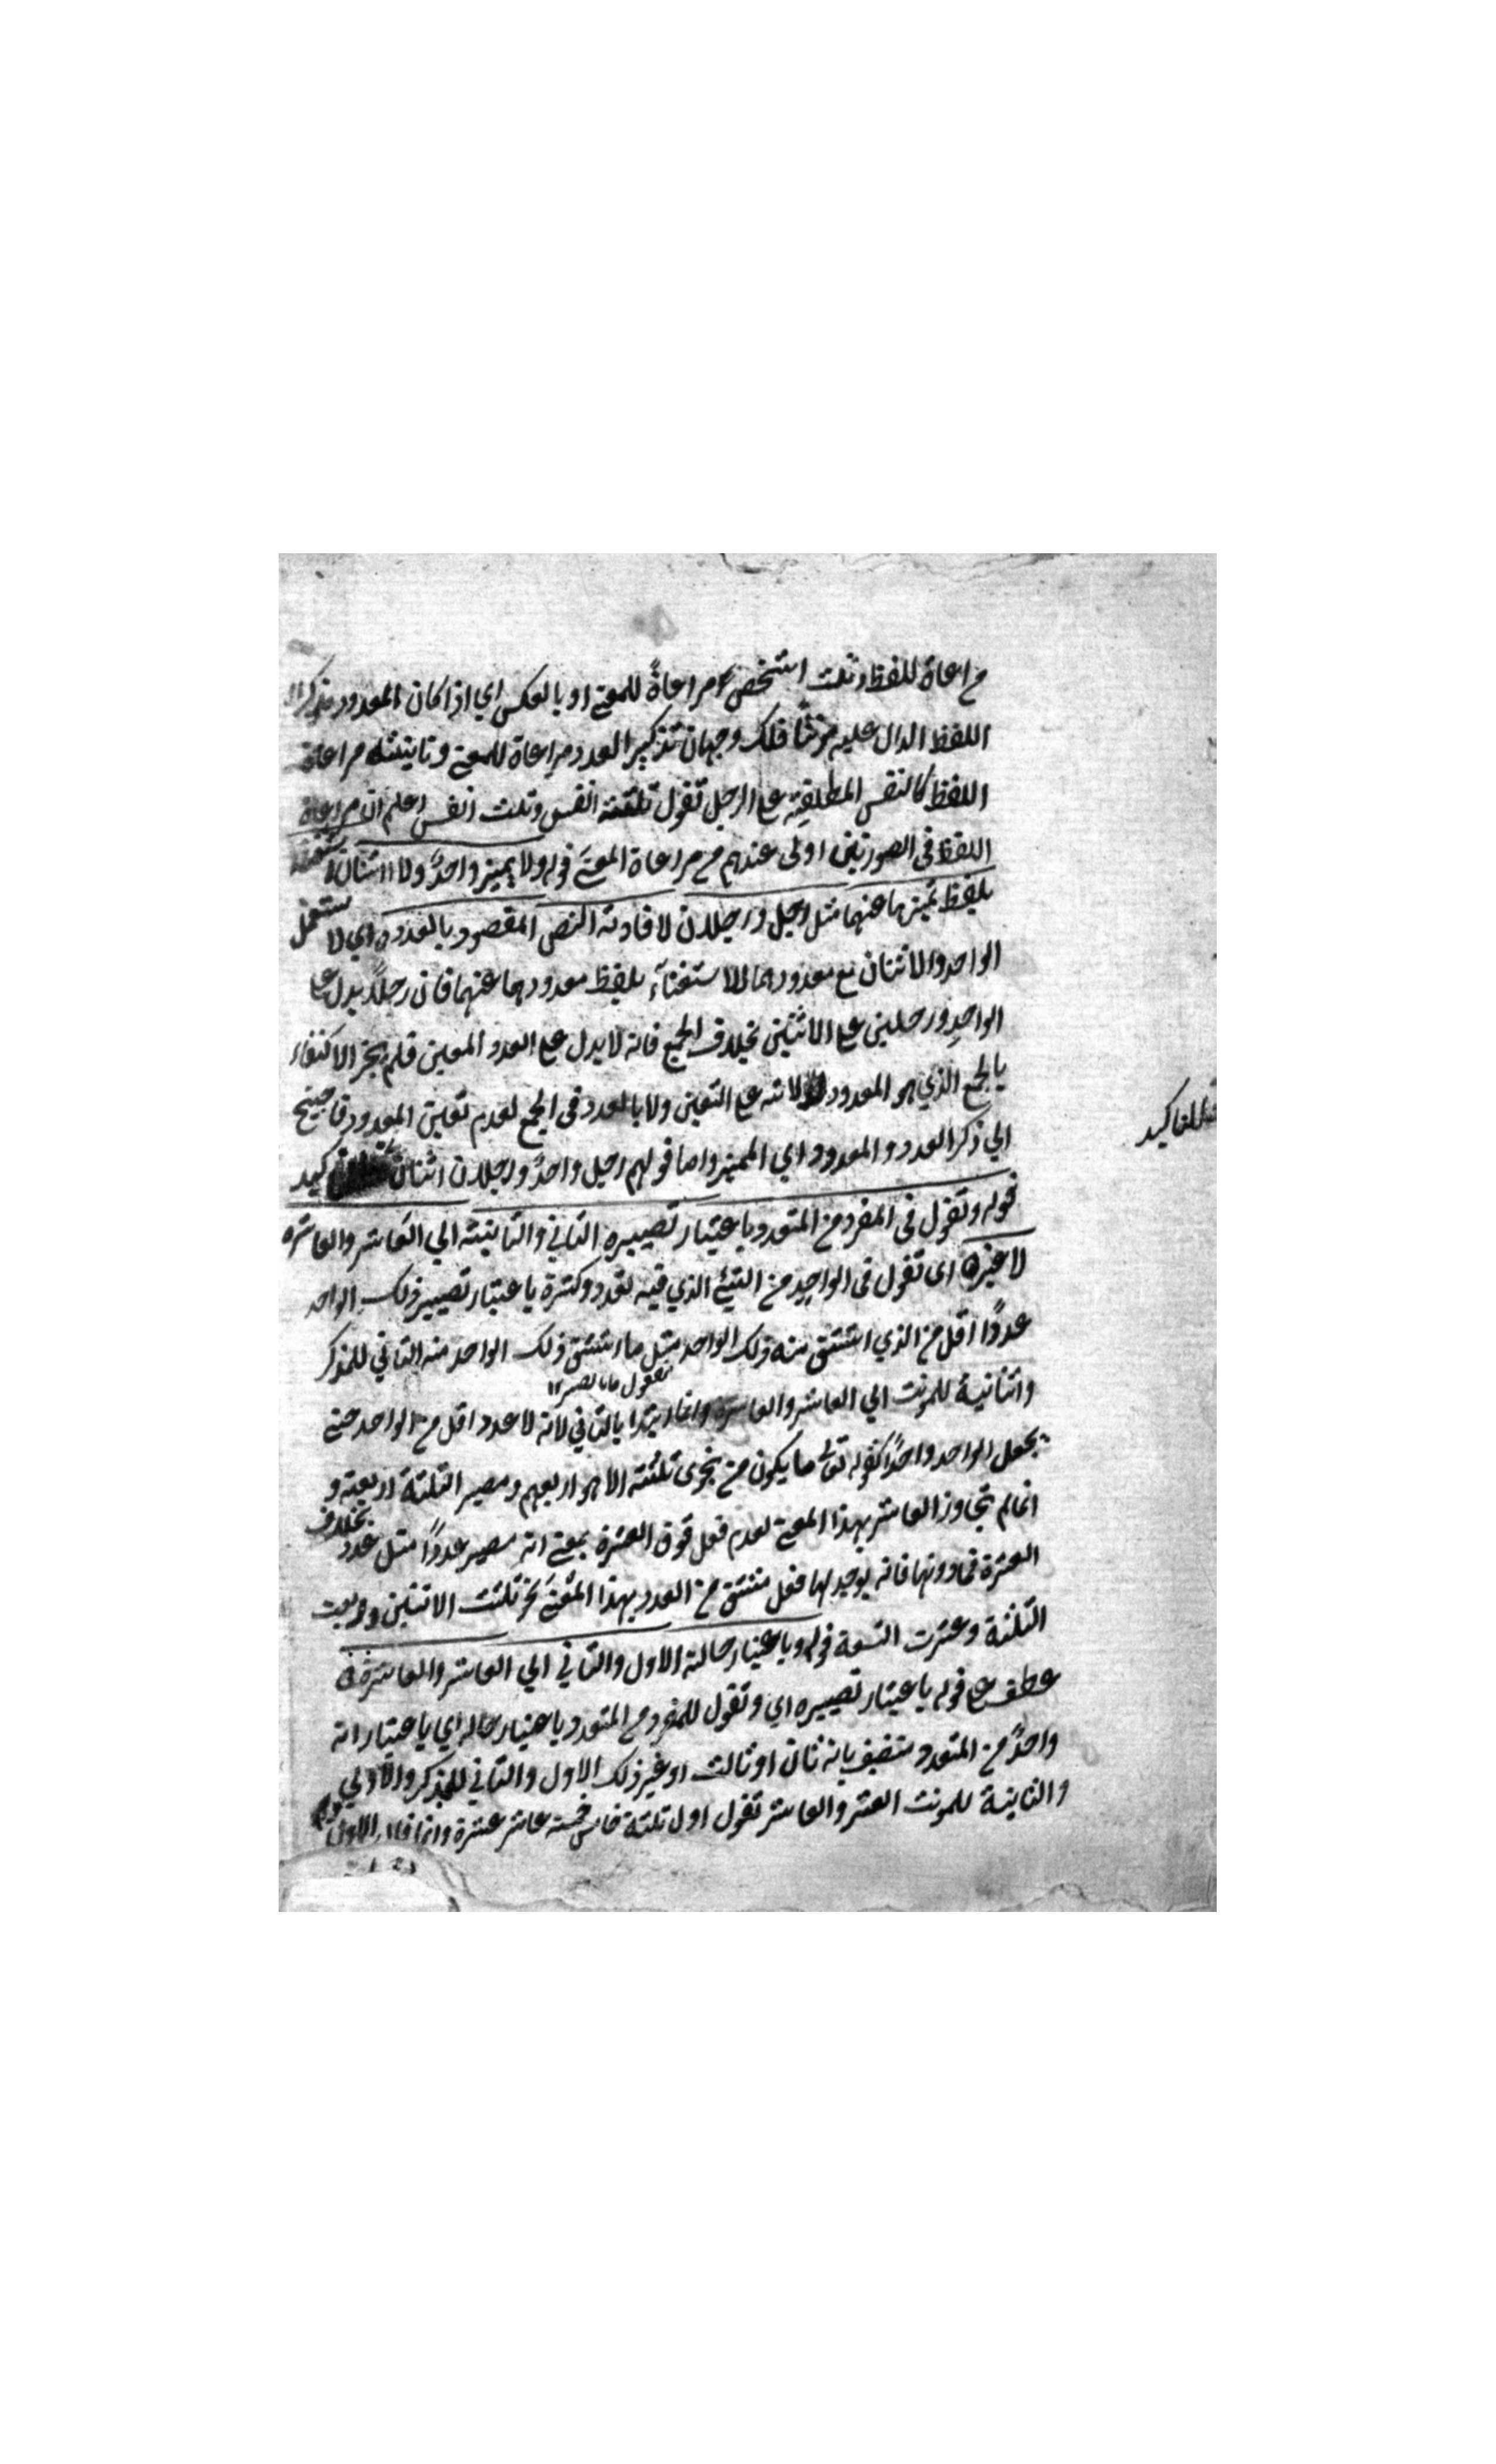 مراعاة للفظ وثلث اشخص مراعاةً للمعنے او بالعكس اي اذا كان المعدود مذكرا
اللفظ الدال عليه مؤنثًا فلك وجهان تذكير العدد مراعاة للمعنے وتانيثه مراعاة
اللفظ كالنفس المطلقة على الرجل تقول ثلثة انفس وثلث انفس اعلم ان مراعاة
اللفظ فى الصورتين اولى عندهم من مراعاة المعنے قوله ولا يميز واحدٌ ولا اثنان استغناء
بلفظ تميزهما عنهما مثل رجل ورجلان لافادته النص المقصود بالعدد اي لا يستعمل
الواحد والاثنان مع معدودهما للاستغناء بلفظ معدودهما عنهما فان رجلاً يدل على
الواحدِ ورجلين على الاثنين بخلاف الجمع فانه لا يدل على العدد المعين فلم يجز الاكتفاء
بالجمع الذي هو المعدود لدلالته على التعين ولا بالعدد فى الجمع لعدم تعين المعدود فاحتيج
الي ذكر العدد والمعدود اي المميز واما قولهم رجل واحدٌ ورجلان اثنان
فللتاكيد
قوله وتقول فى المفرد من المتعدد باعتبار تصييره الثاني والثانية الي العاشر والعاشرة
لا غيره اى تقول فى الواحدِ من الشئ الذي فيه تعدد وكثرة باعتبار تصيير ذلك الواحد
عددًا اقل من الذي اشتق منه ذلك الواحد مثل ما اشتق ذلك الواحد منه الثاني للمذكر
واثنانية للمونث الي العاشر والعاشرة وانما ابتدا بالثاني لانه لا عدد اقل من الواحد حتے
يجعل الواحد واحدًا كقوله تعالى ما يكون من نجوى ثلثة الا هو رابعهم ومصير الثلثة اربعة و
انما لم تجاوز العاشر بهذا المعنے لعدم فعل فوق العشرة بمعنے انه مصير عددًا مثل عدد بخلاف
العشرة فما دونها فانه يوجد لها فعل مشتق من العدد بهذا المعنے نحو ثلثت الاثنين وربعت
الثلثة وعشرت التسعة قوله وباعتبار حالته الاول والثاني الي العاشر والعاشرة
عطف على قوله باعتبار تصييره اي وتقول للمفرد من المتعدد باعتبار حاله اي باعتبار انه
واحدٌ من المتعدد متصف بانه ثان او ثالث او غير ذلك الاول والثاني للمذكر والاولي
والثانية للمونث العشر والعاشر تقول اول ثلثة خامس خمسة عاشر عشرة وانما قال الاول